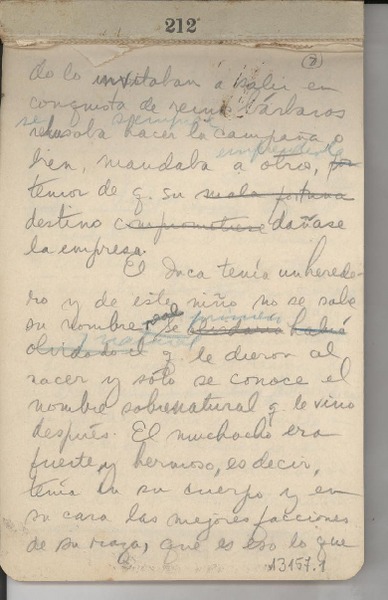 212
(7)
do lo invitaban a salir en
conquista de reinos bárbaros
se siempre
rehusaba hacer la campaña o
emprenderla
bien, mandaba a otro, por
temor de q. su mala fortuna
destino comprometiese dañase
la empresa.
El Inca tenía un herede-
ro y de este niño no se sabe
real primero
su nombre, se
natural
olvidado el q. le dieron al
nacer y sólo se conoce el
nombre sobrenatural q. le vino
después. El muchacho era
fuerte, y hermoso, es decir,
tenía en su cuerpo y en
su cara las mejores facciones
de su raza, que es eso lo que
A3157.1